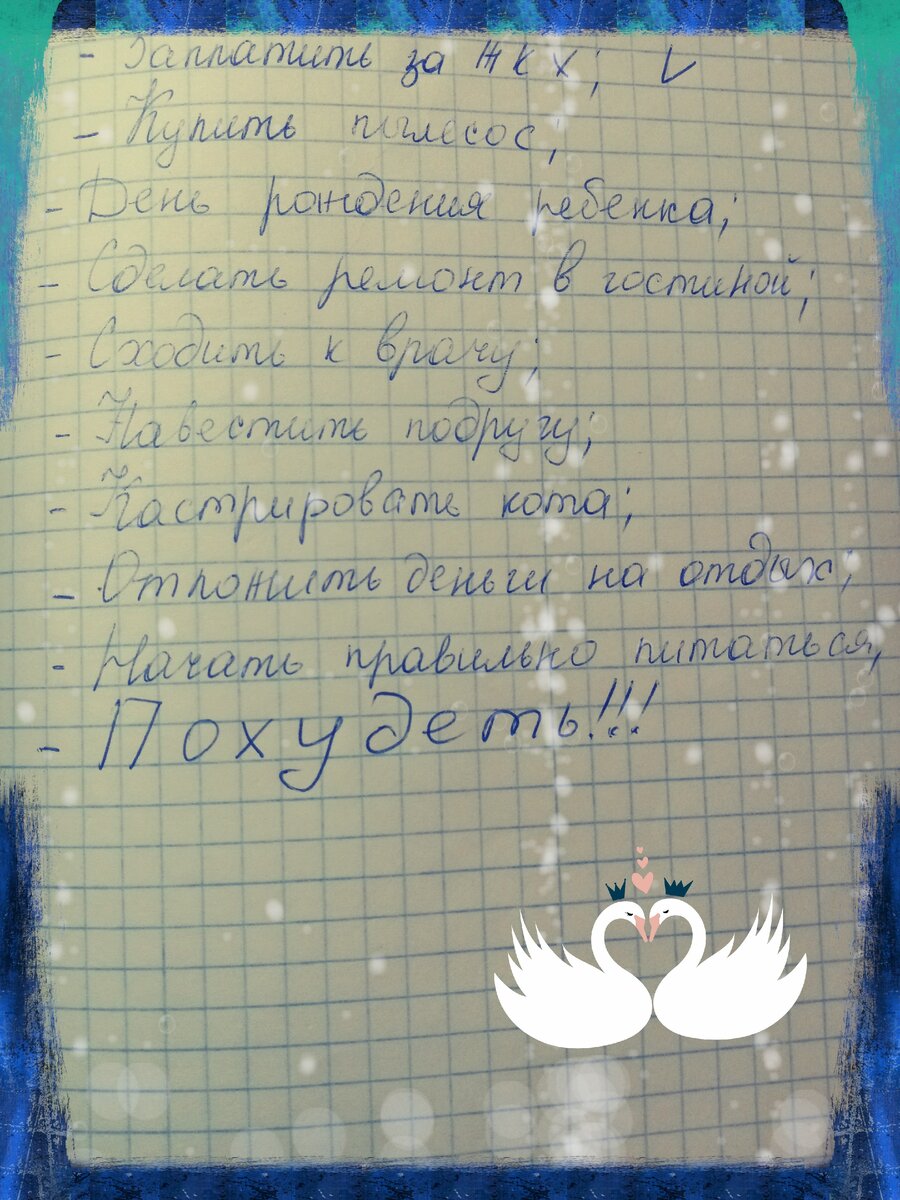 - Заплатить за ЖКХ; V
- Купить пылесос;
- День рождения ребенка;
- Сделать ремонт в гостиной;
- Сходить к врачу;
- Навестить подругу;
- Кастрировать кота;
- Отложить деньги на отдых;
- Начать правильно питаться,
- Похудеть!!!